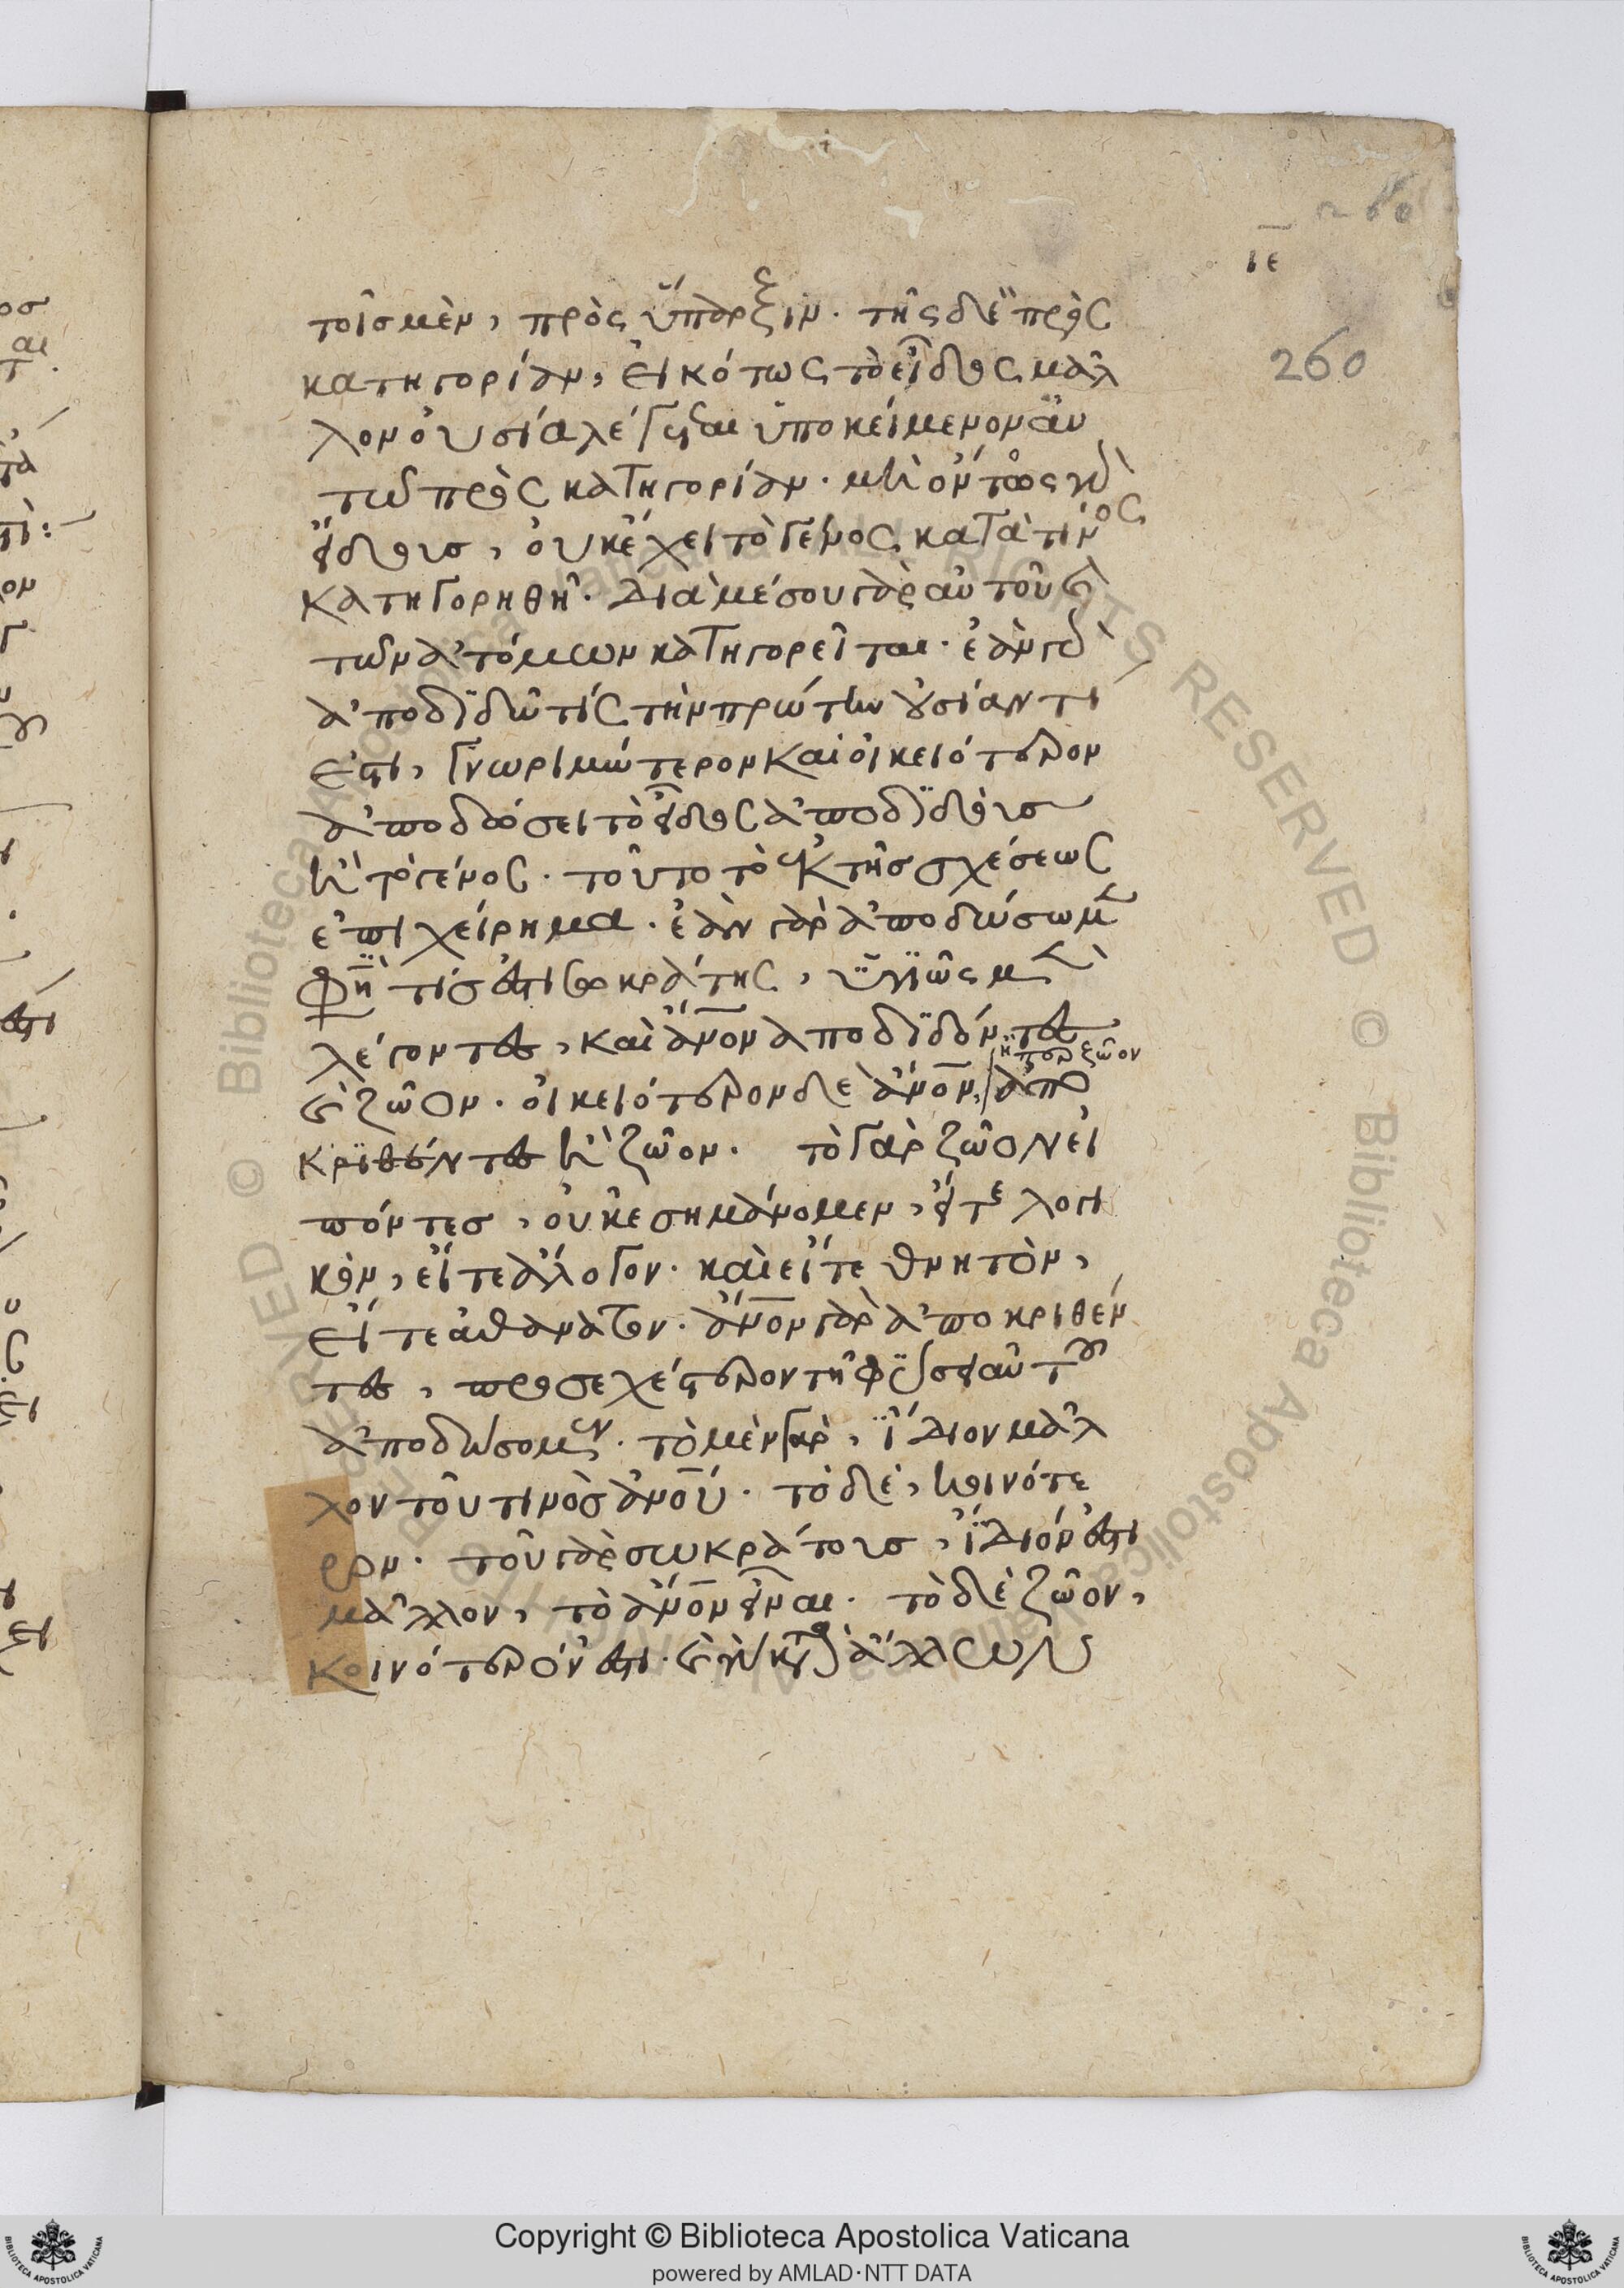 260
ιε
260
τοῖς μὲν, πρὸς ὕπαρξιν· τῆς δὲ πρὸς
κατηγορίαν, εἰκότως τὸ εἶδος μᾶλ
λον οὐσία λέγεται ὑποκείμενον
πρὸς κατηγορίαν· μὴ ὄντος γὰρ
εἴδους, οὐκ ἔχει τὸ γένος κατὰ τίνος
κατηγορηθῆ· Διὰ μέσου γὰρ αὐτοῦ καὶ
τῶν ἀτόμων κατηγορεῖται· ἐὰν γὰρ
ἀποδιδῶ τίς τὴν πρώτην οὐσίαν τί
ἐστι, γνωριμώτερον καὶ οἰκειότερον
ἀποδώσει τὸ εἶδος ἀποδιδοὺς
ἢ τὸ γένος· τοῦτο τὸ ἐκ τῆς σχέσεως
ἐπιχείρημα· ἐὰν γὰρ ἀποδώσωμεν
φη τίς ἐστι σωκράτης, ὑγιῶς μὲν
λέγοντες, καὶ ἄνον ἀποδιδόντες
καὶ ζῶον· οἰκειότερον δὲ ἄνον, ἀπο
ἤπερ ζῶον
κριθέντες ἢ ζῶον· τὸ γὰρ ζῶον εἰ
πόντες, οὐκ ἐσημάνομεν, εἴτε λογι
κὸν, εἴτε ἄλογον· καὶ εἴτε θνητὸν,
εἴτε ἀθάνατον· ἄνον γὰρ ἀποκριθέν
τες, προσεχέστερον τῆ φύσει αὐτοῦ
ἀποδώσομεν· τὸ μὲν γὰρ, ἴδιον μᾶλ
λον τοῦ τινὸς ἀνού· τὸ δὲ, κοινότε
ρον· τοῦ γὰρ σωκράτους, ἴδιόν ἐστι
μᾶλλον, τὸ ἄνον εἶναι· τὸ δὲ ζῶον,
κοινότερόν ἐστι· καὶ γὰρ κατὰ ἄλλων
Copyright © Biblioteca Apostolica Vaticana
powered by AMLAD·NTT DATA